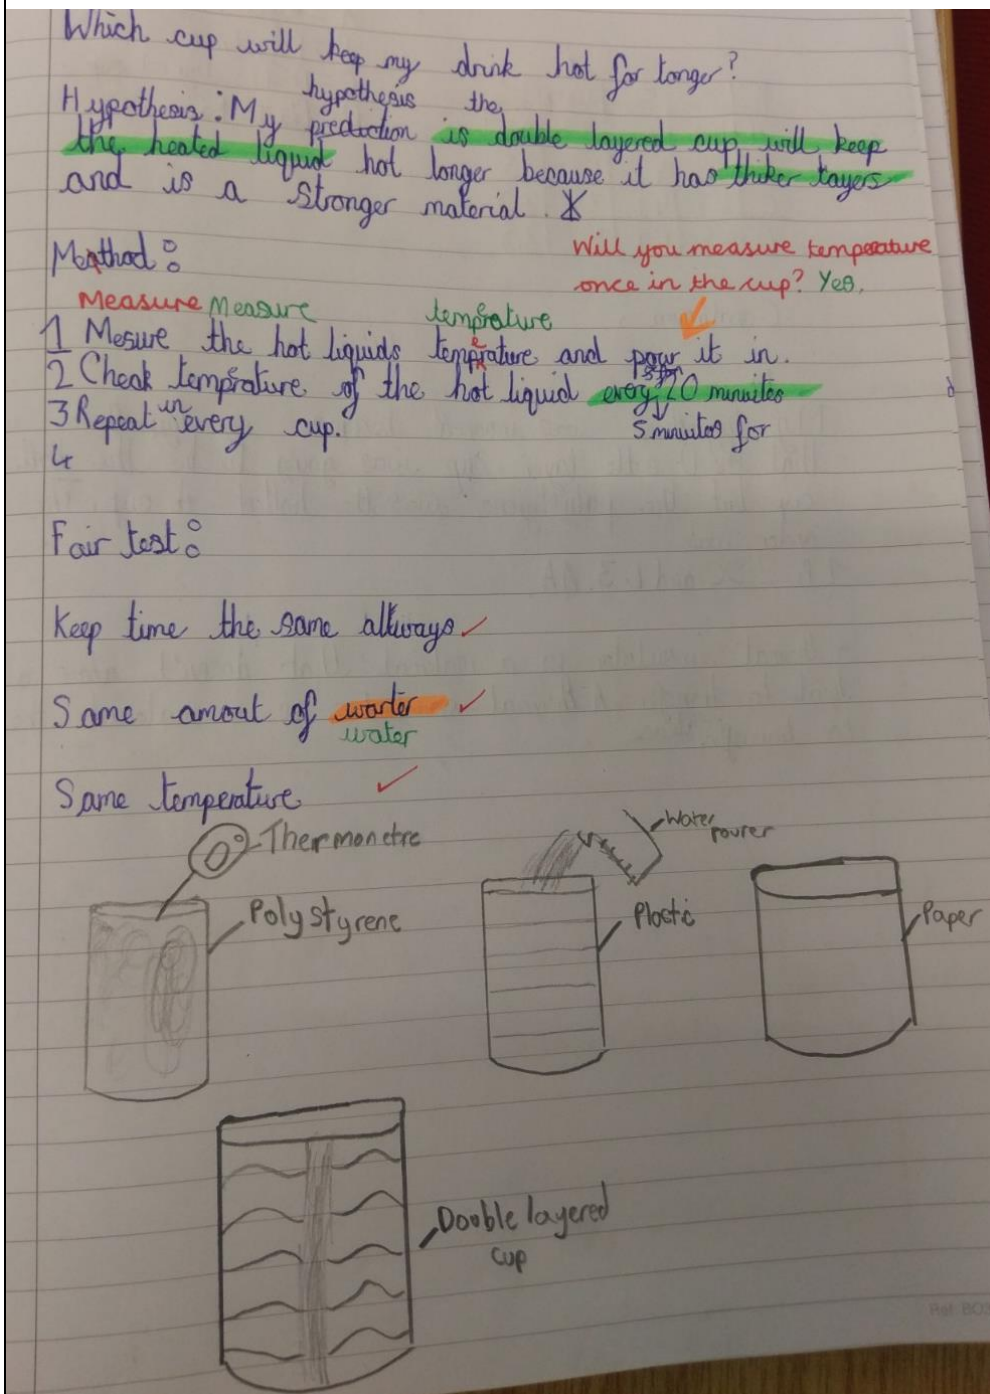 Which cup will keep my drink hot for longer?
hypothesis the
Hypothesis: My prediction is double layered cup will keep
the heated liquid hot longer because it has thiker layers
and is a stronger material.
Method:
Will you measure temperature
once in the cup? Yes.
Measure Measure temprature
1 Mesure the hot liquids temprature and pour it in.
2 Cheak temprature of the hot liquid every 20 minuites
3 Repeat in every cup.
5 minuites for
4
Fair test:
Keep time the same allways ✓
Same amout of warter ✓
water
Same temperature ✓
Thermometre
Water
pourer
Polystyrene
Plastic
Paper
Double layered
cup